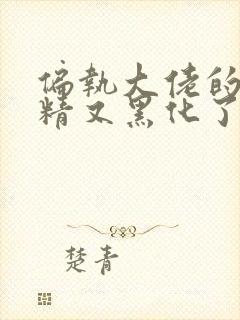 偏执大佬的
精又黑化了
楚青